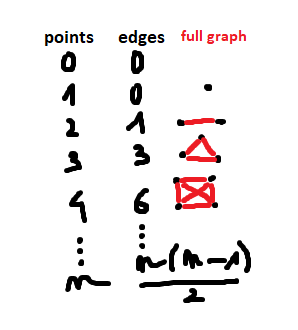 points edges full graph
0 0
1 0
2 1
3 3
4 6
⋮ ⋮
n n(n-1)
2